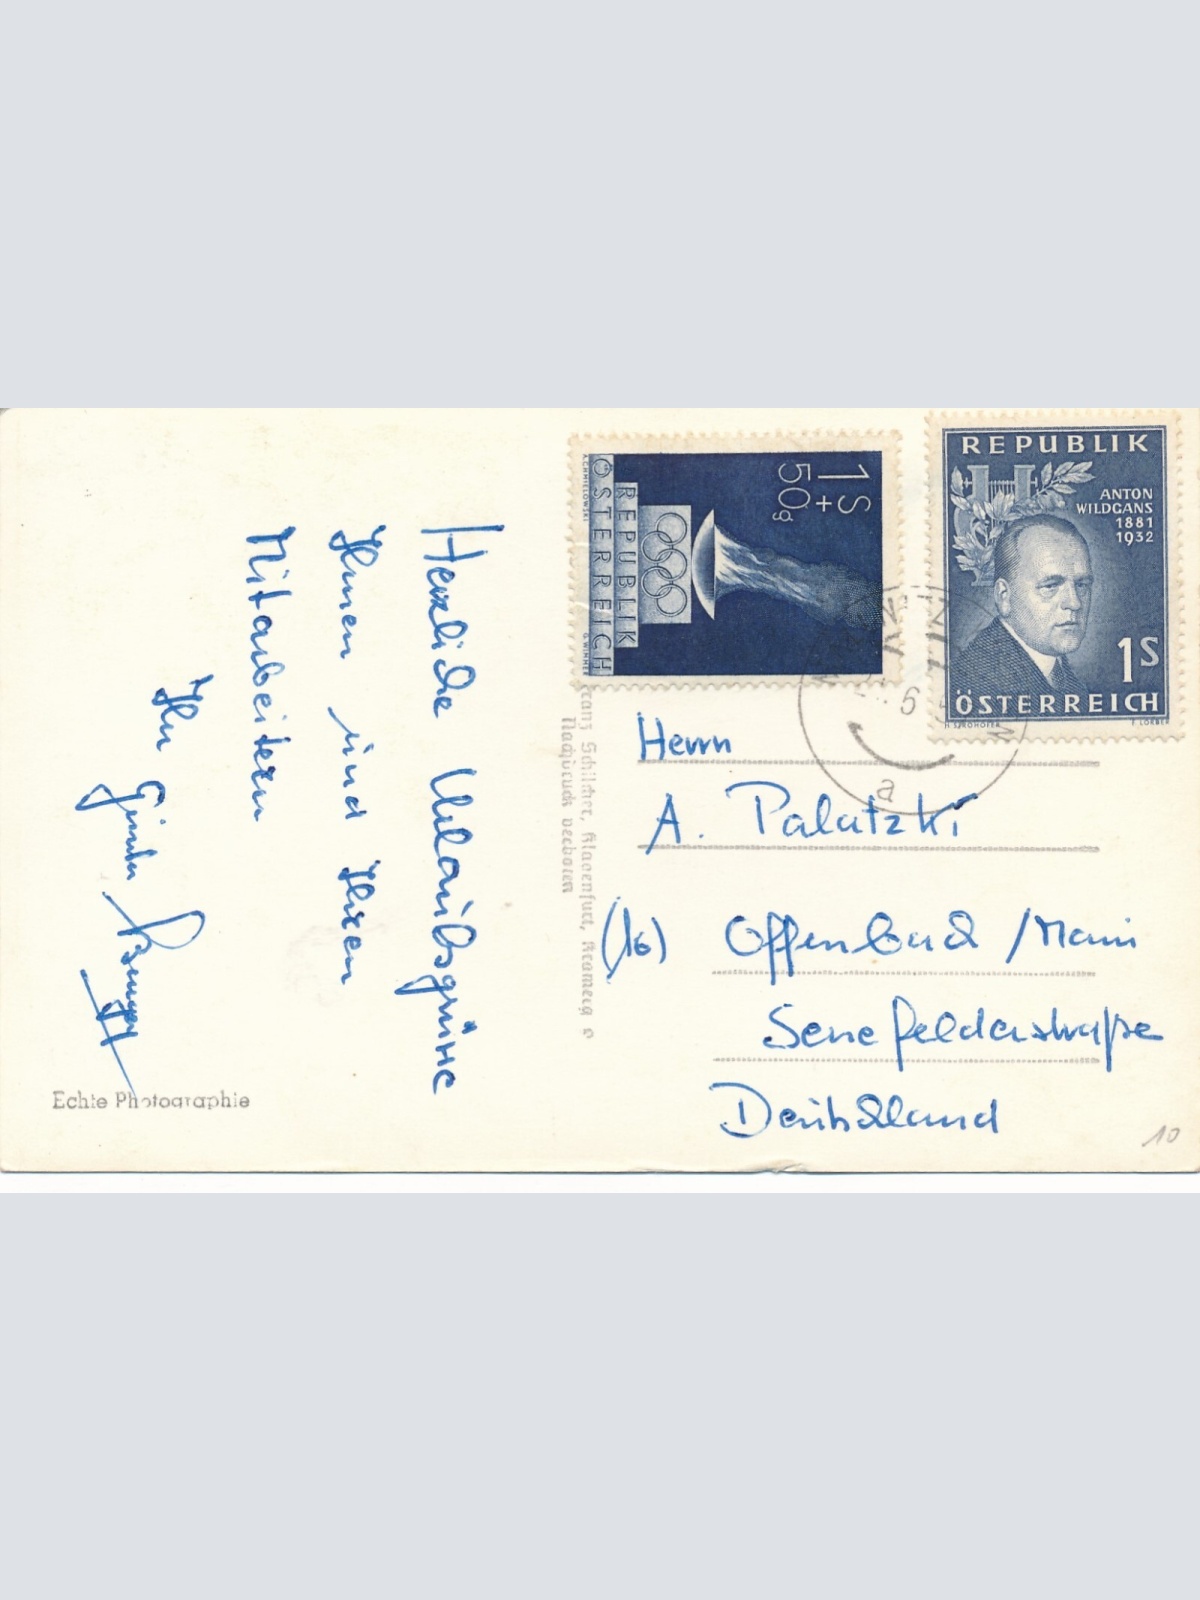 Herzliche Urlaubsgrüße
Ihnen und Ihren
Mitarbeitern
Ihr Günter
Echte Photographie
Franz Schilcher, Klagenfurt, Kramerg
Nachdruck verboten
1S+
50g
REPUBLIK
ÖSTERREICH
REPUBLIK
ANTON
WILDGANS
1881
1932
1S
ÖSTERREICH
6
a
Herrn
A. Palatzki
(16) Offenbach /Main
Senefelderstraße
Deutschland
10